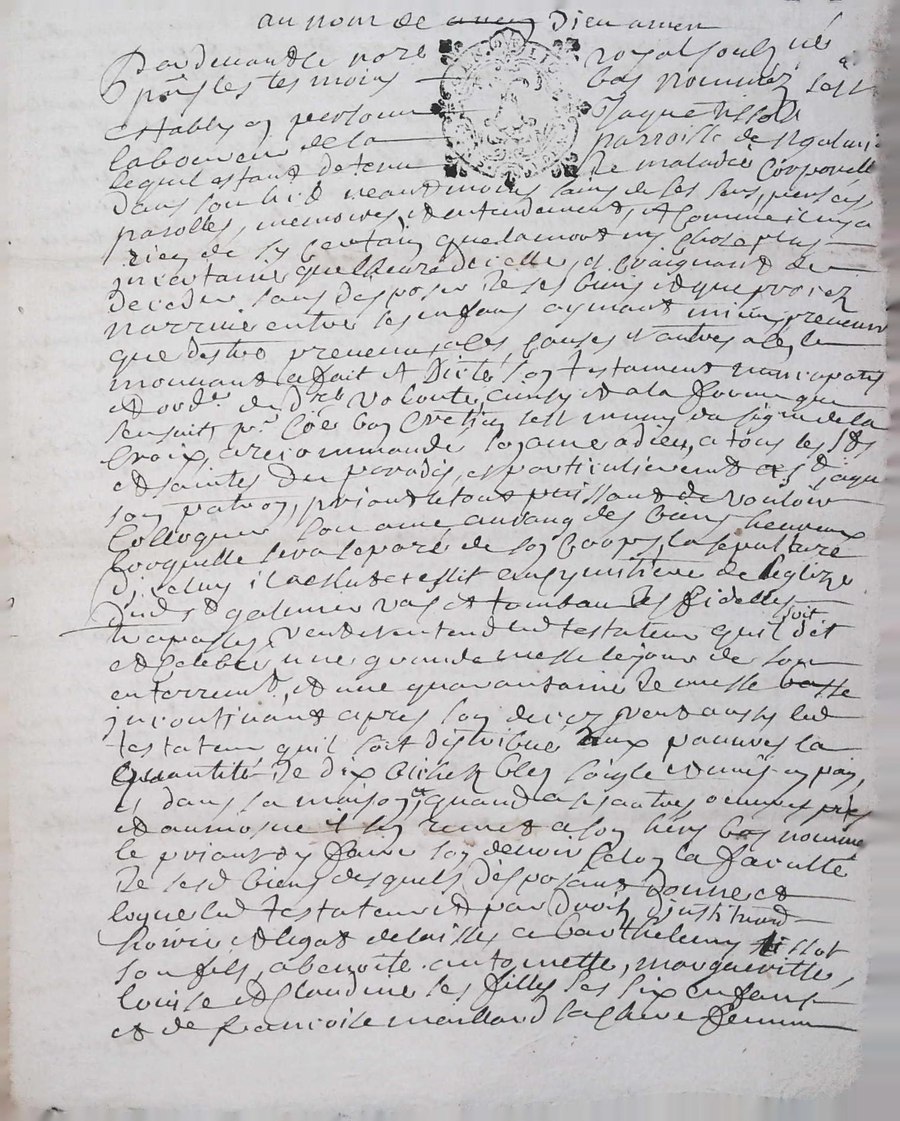 au nom de amen Dieu amen
Pardevant le no.re royal soubz.né
p.nts les tesmoins bas nommez s'est
estably en personne Jaque Tissot
laboureur de la parroisse de St galmier
lequel estant detenu de maladie Corporelle
dans son lict neantmoins sains de ses sens, pensées
parolles, memoires et entendement, et Comme il ny a
rien de sy Certain que la mort ny chose plus
incertaine que lheure dicelle, et Craignant de
deceder sans disposer de ses biens et que procez
narrive entre ses enfans aymant mieux prevenir
que destre prevenu a ces causes et autres a ce le
mouvant a fait et Dicté son testament nuncupatif
et ord.e de D.re Volonté ainsy et a la forme que
sensuit, p.r Coe bon Cretien sest muny du signe de la
Croix, a recommandé son ame a dieu, a tous les sts
et saintes du paradis, et particulierement a st jaque
son patron, priant le tout puissant de Vouloir
Colloquer son ame au rang des bien heureux
Lorsquelle sera separé de son Corps, la sepulture
Diceluy il a eslut et eslit au cymitiere de leglize
dud st galmier vas et tombau des fidelles
trapassés veut et entend led testateur quil soit dit
et Celebré une grande messe le jour de son
enterrem.t, et une quarantaine de messe basse
incontinant apres son decez veut aussy led
testateur quil soit distribué aux pauvres la
Quantité de dix bichetz bled soigle et mis en pain
et dans sa maison, et quand a ses autres oeuvres pies
et aumosne il sen remet a son hers bas nommé
le priant den faire son devoir selon la faculté
de sesd biens desquels disposant donne et
legue led testateur et par droit dinstitu.on
hoirie et legat delaisse a barthelemy tissot
son fils, a benoite antoinette, margueritte,
louise et Claudine ses filles ses six enfans
et de francoise maillard sa chere femme